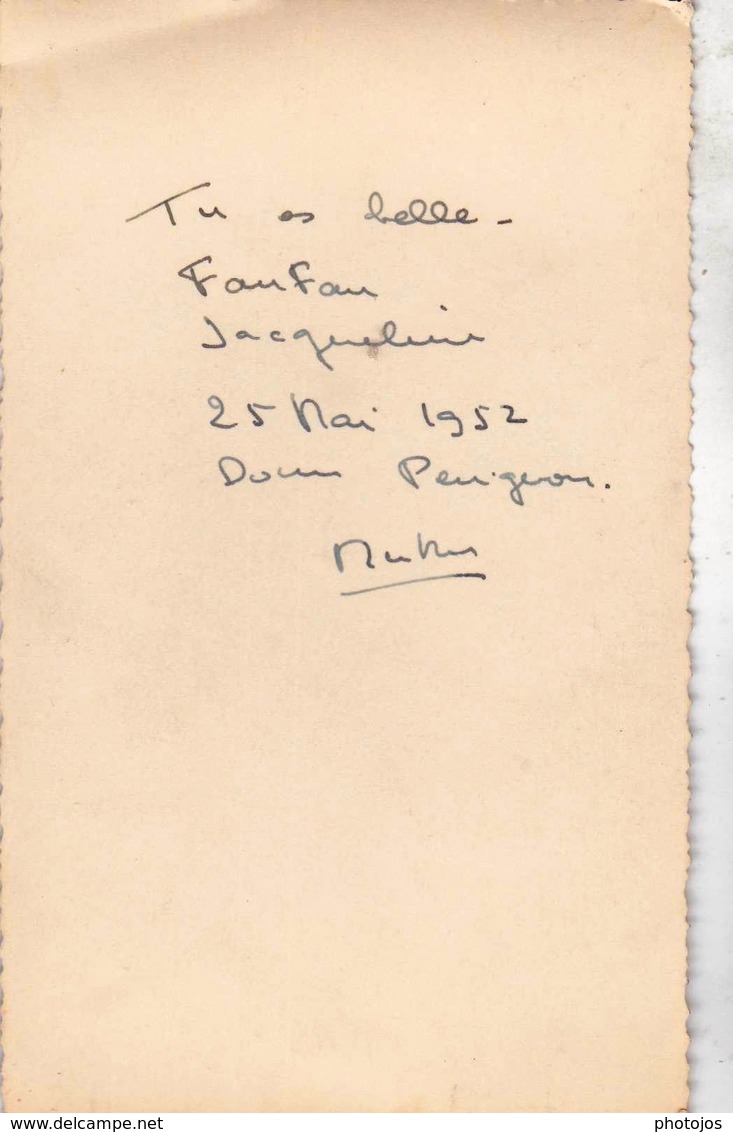 Tu es belle -
FanFan
Jacqueline
25 Mai 1952
Dom Perignon.
delcampe.net
photojos